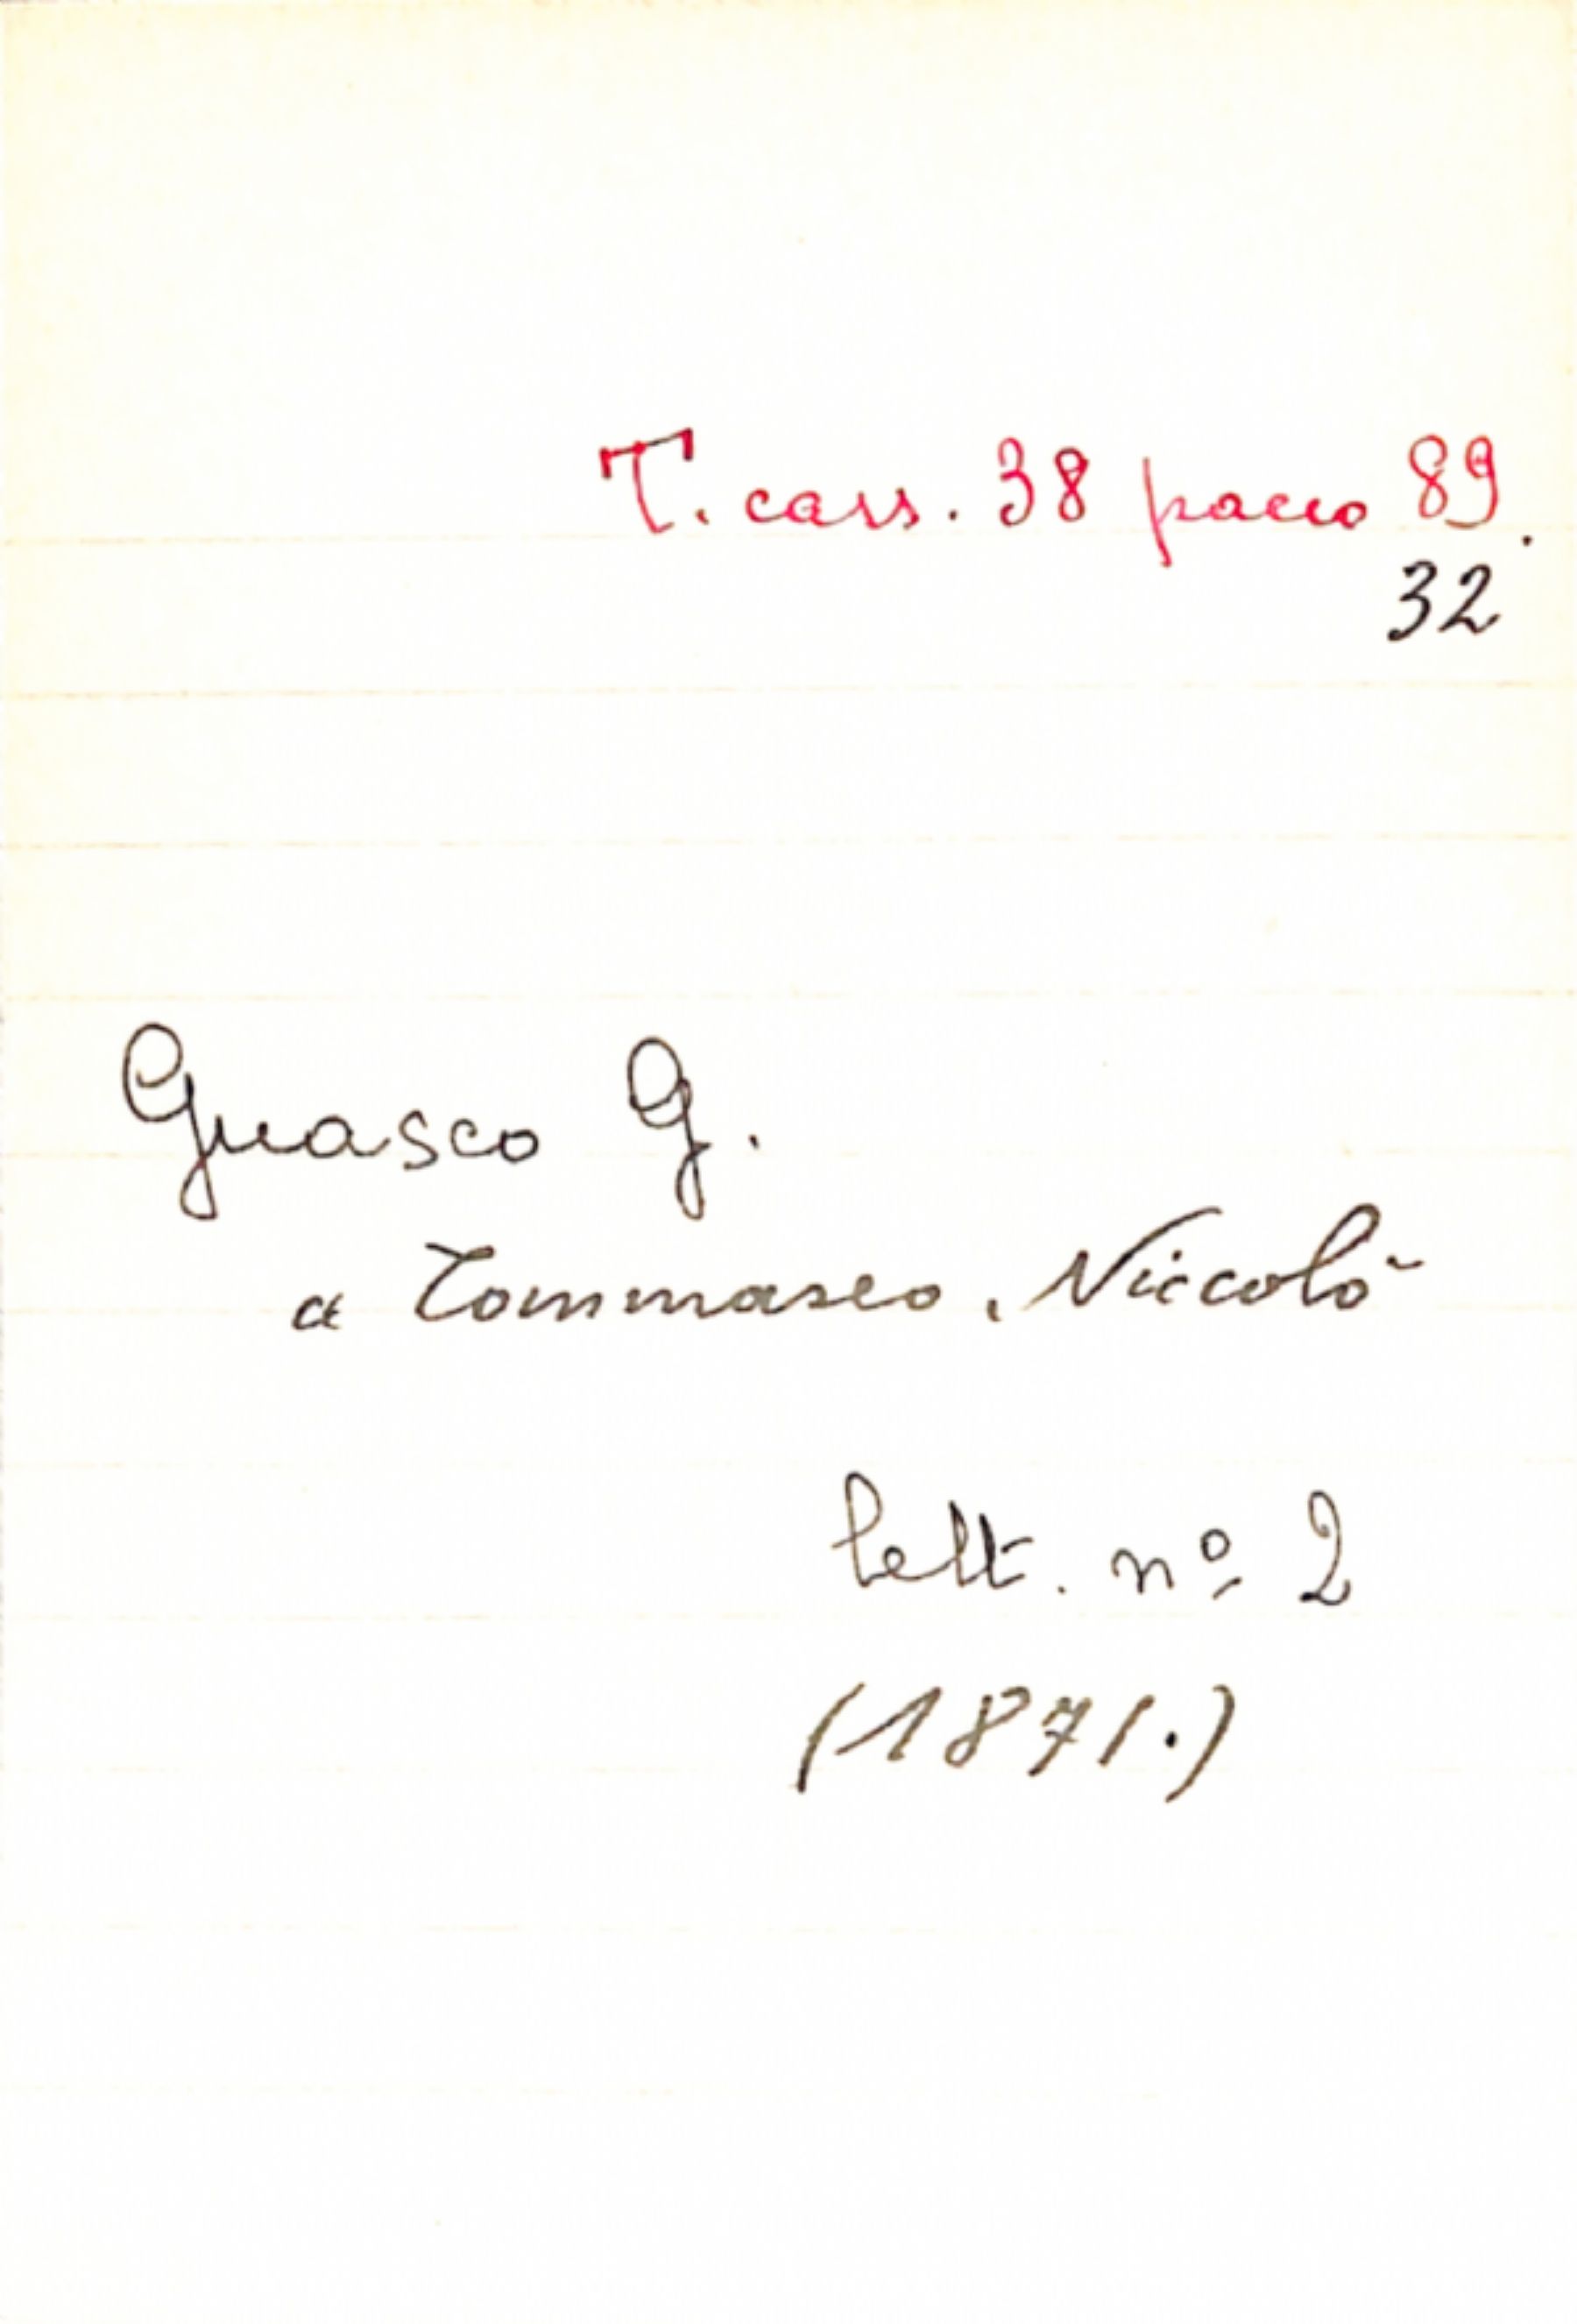 T. cass. 38 pacco 89.
32
Guasco G.
a Tommaseo, Niccolò
lett. nº 2
(1871.)